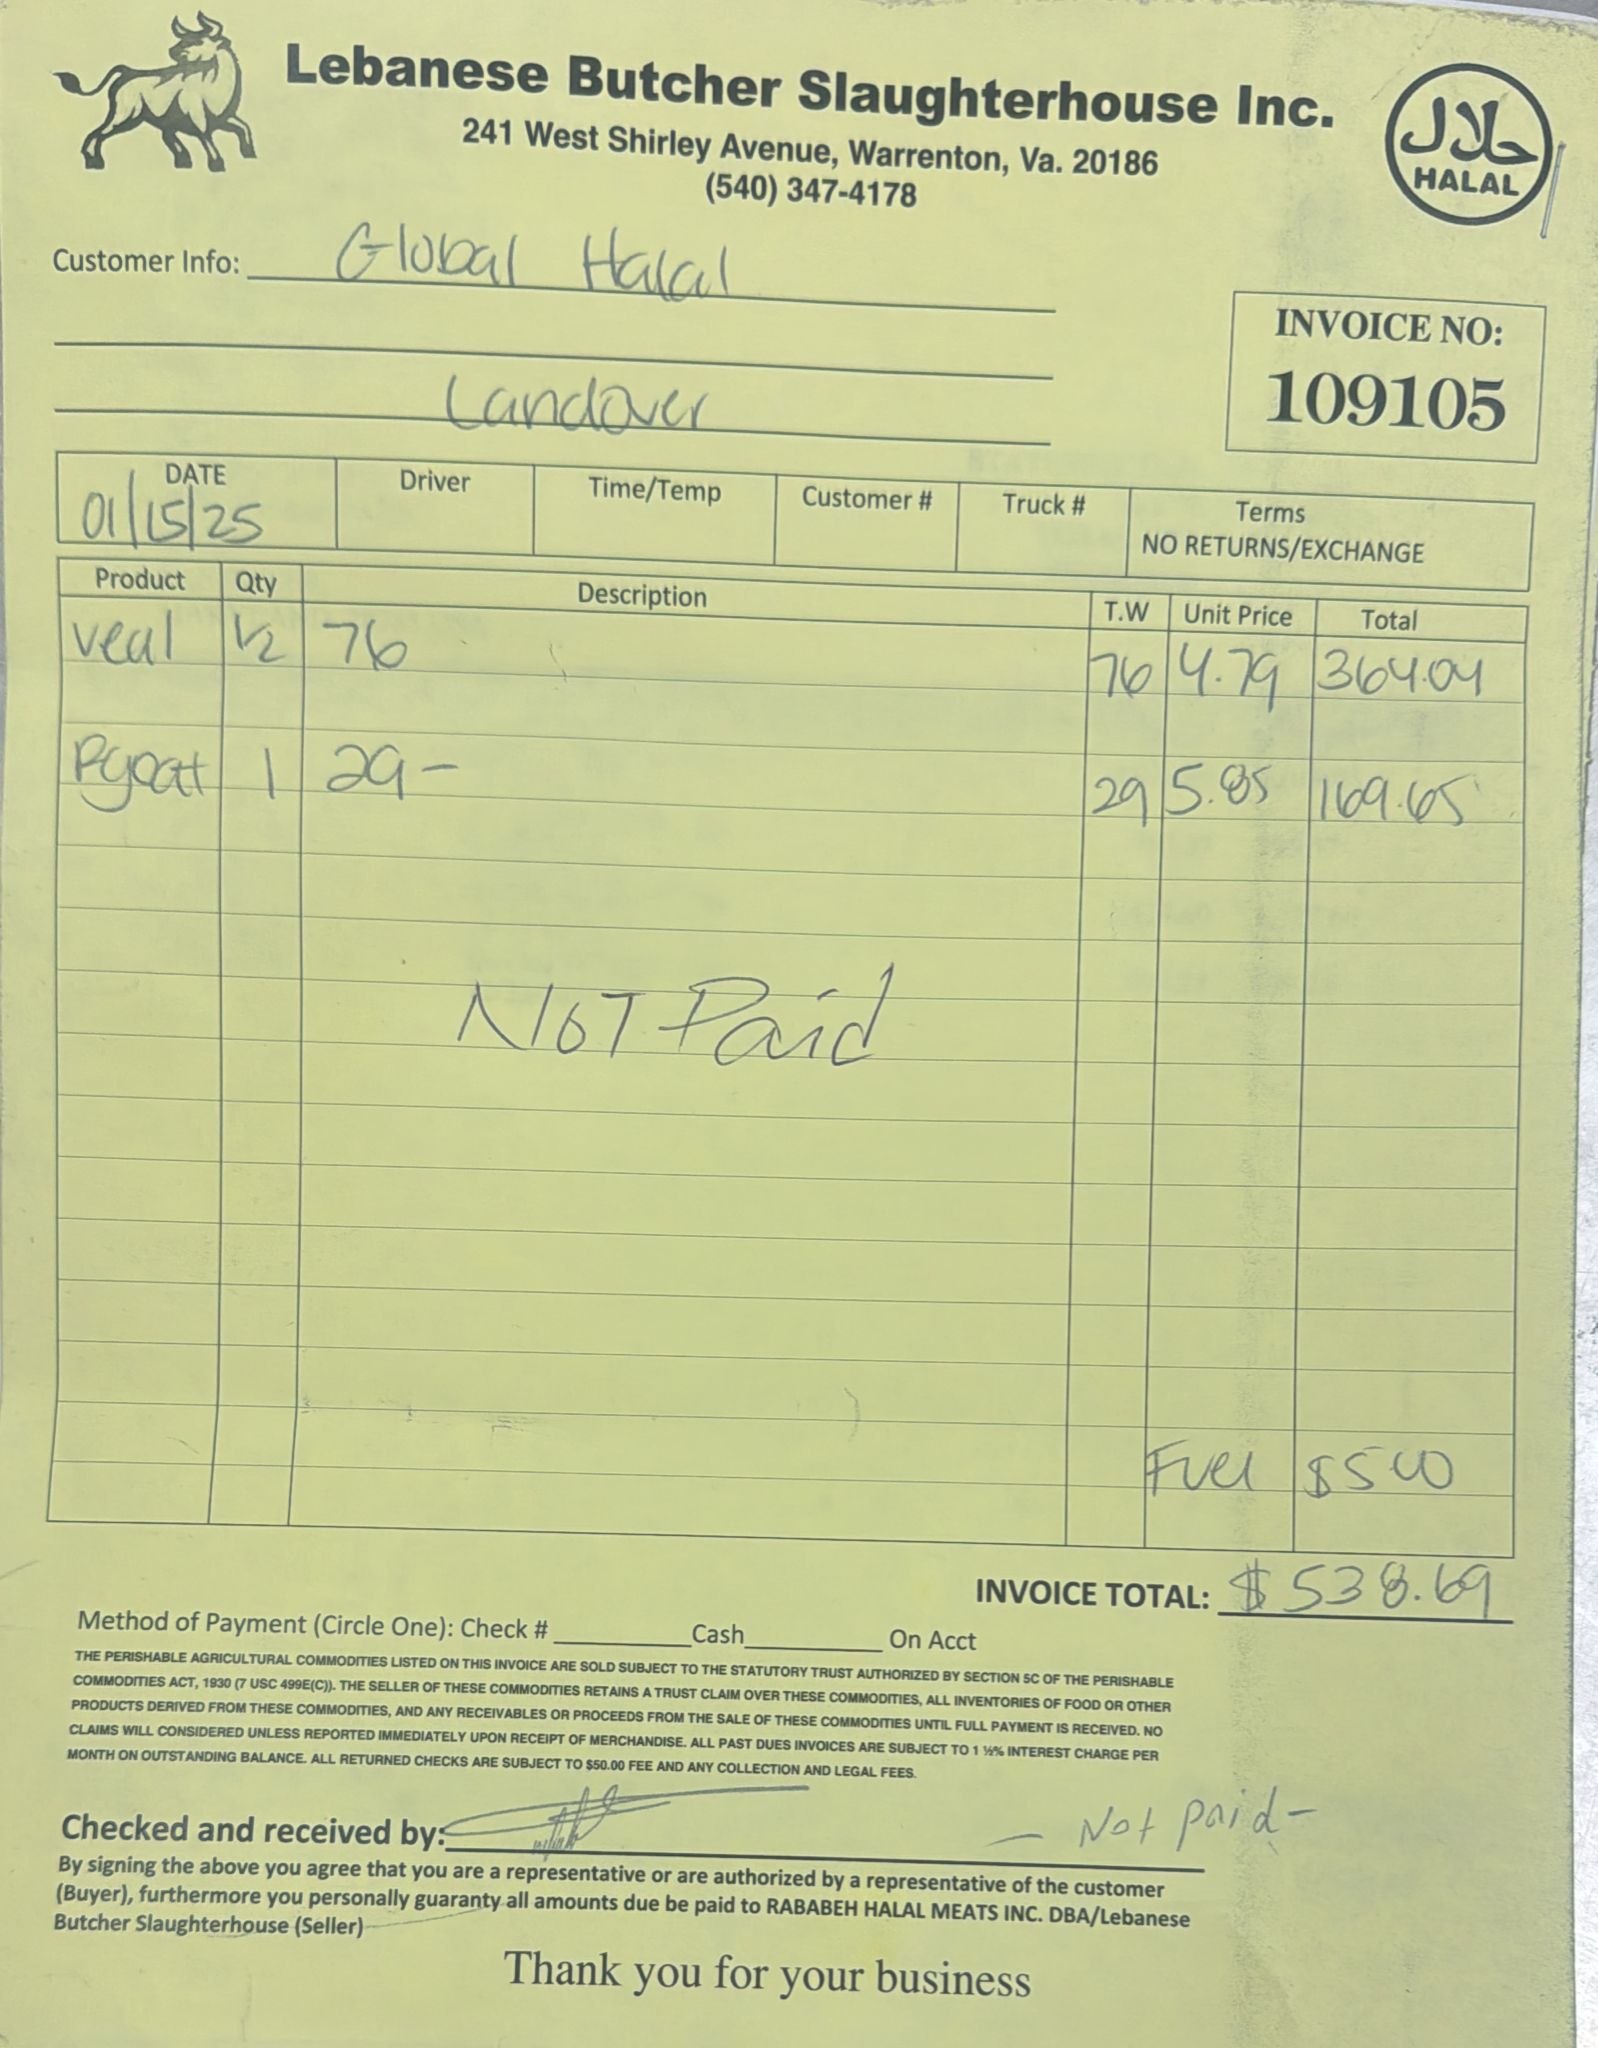 Lebanese Butcher Slaughterhouse Inc.
241 West Shirley Avenue, Warrenton, Va. 20186
(540) 347-4178
حلال
HALAL
Customer Info: Global Halal
Landover
INVOICE NO:
109105
DATE Driver Time/Temp Customer # Truck # Terms
01/15/25 NO RETURNS/EXCHANGE
Product Qty Description T.W Unit Price Total
veal 1/2 76 76 4.79 364.04
Pgoat 1 29- 29 5.85 169.65
NOT Paid
Fuel $5.00
INVOICE TOTAL: $538.69
Method of Payment (Circle One): Check # Cash On Acct
THE PERISHABLE AGRICULTURAL COMMODITIES LISTED ON THIS INVOICE ARE SOLD SUBJECT TO THE STATUTORY TRUST AUTHORIZED BY SECTION 5C OF THE PERISHABLE
COMMODITIES ACT, 1930 (7 USC 499E(C)). THE SELLER OF THESE COMMODITIES RETAINS A TRUST CLAIM OVER THESE COMMODITIES, ALL INVENTORIES OF FOOD OR OTHER
PRODUCTS DERIVED FROM THESE COMMODITIES, AND ANY RECEIVABLES OR PROCEEDS FROM THE SALE OF THESE COMMODITIES UNTIL FULL PAYMENT IS RECEIVED. NO
CLAIMS WILL CONSIDERED UNLESS REPORTED IMMEDIATELY UPON RECEIPT OF MERCHANDISE. ALL PAST DUES INVOICES ARE SUBJECT TO 1 ½% INTEREST CHARGE PER
MONTH ON OUTSTANDING BALANCE. ALL RETURNED CHECKS ARE SUBJECT TO $50.00 FEE AND ANY COLLECTION AND LEGAL FEES.
Checked and received by: — Not paid —
By signing the above you agree that you are a representative or are authorized by a representative of the customer
(Buyer), furthermore you personally guaranty all amounts due be paid to RABABEH HALAL MEATS INC. DBA/Lebanese
Butcher Slaughterhouse (Seller)
Thank you for your business